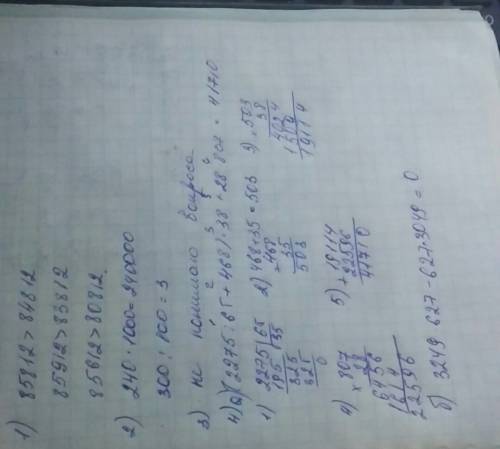 1) 85812 > 84812
85912 > 83812
85812 > 80812
2) 240 · 1000 = 240000
300 : 100 = 3
3) не понимаю вопроса
4) а) (2275 : 65 + 468) · 38 + 28 · 807 = 41710
1) 2275 | 65
195 35
325
325
0
2) 468 + 35 = 503
+ 468
35
503
3) × 503
38
4024
1509
19114
4) × 807
28
6456
1614
22596
5) + 19114
22596
41710
б) 3249 · 627 - 627 · 3249 = 0